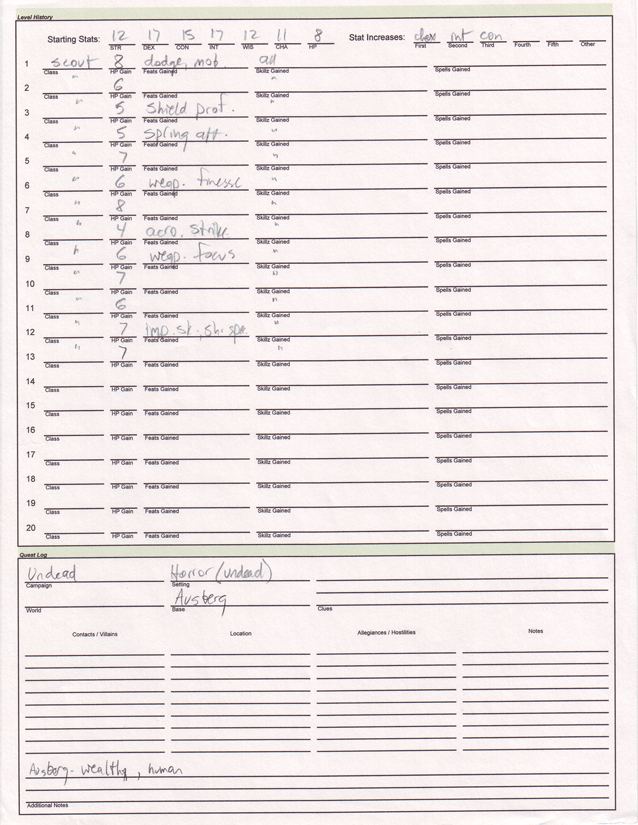 Level History
Starting Stats: 12 17 15 17 12 11 8 Stat Increases: int con
STR DEX CON INT WIS CHA HP First Second Third Fourth Fifth Other
1 scout 8 dodge, mob. all
Class HP Gain Feats Gained Skillz Gained Spells Gained
2 " 6 "
Class HP Gain Feats Gained Skillz Gained Spells Gained
3 " 5 shield prof. "
Class HP Gain Feats Gained Skillz Gained Spells Gained
4 " 5 spring att. "
Class HP Gain Feats Gained Skillz Gained Spells Gained
5 " 7 "
Class HP Gain Feats Gained Skillz Gained Spells Gained
6 " 6 weap. finesse "
Class HP Gain Feats Gained Skillz Gained Spells Gained
7 " 8 "
Class HP Gain Feats Gained Skillz Gained Spells Gained
8 " 4 acro. strike "
Class HP Gain Feats Gained Skillz Gained Spells Gained
9 " 6 weap. focus "
Class HP Gain Feats Gained Skillz Gained Spells Gained
10 " 7 "
Class HP Gain Feats Gained Skillz Gained Spells Gained
11 " 6 "
Class HP Gain Feats Gained Skillz Gained Spells Gained
12 " 7 imp. sk., sh. spe. "
Class HP Gain Feats Gained Skillz Gained Spells Gained
13 " 7 "
Class HP Gain Feats Gained Skillz Gained Spells Gained
14
Class HP Gain Feats Gained Skillz Gained Spells Gained
15
Class HP Gain Feats Gained Skillz Gained Spells Gained
16
Class HP Gain Feats Gained Skillz Gained Spells Gained
17
Class HP Gain Feats Gained Skillz Gained Spells Gained
18
Class HP Gain Feats Gained Skillz Gained Spells Gained
19
Class HP Gain Feats Gained Skillz Gained Spells Gained
20
Class HP Gain Feats Gained Skillz Gained Spells Gained
Quest Log
Undead Horror (undead)
Campaign Setting
Ausberg
World Base Clues
Contacts / Villains Location Allegiances / Hostilities Notes
Ausberg - wealthy, human
Additional Notes